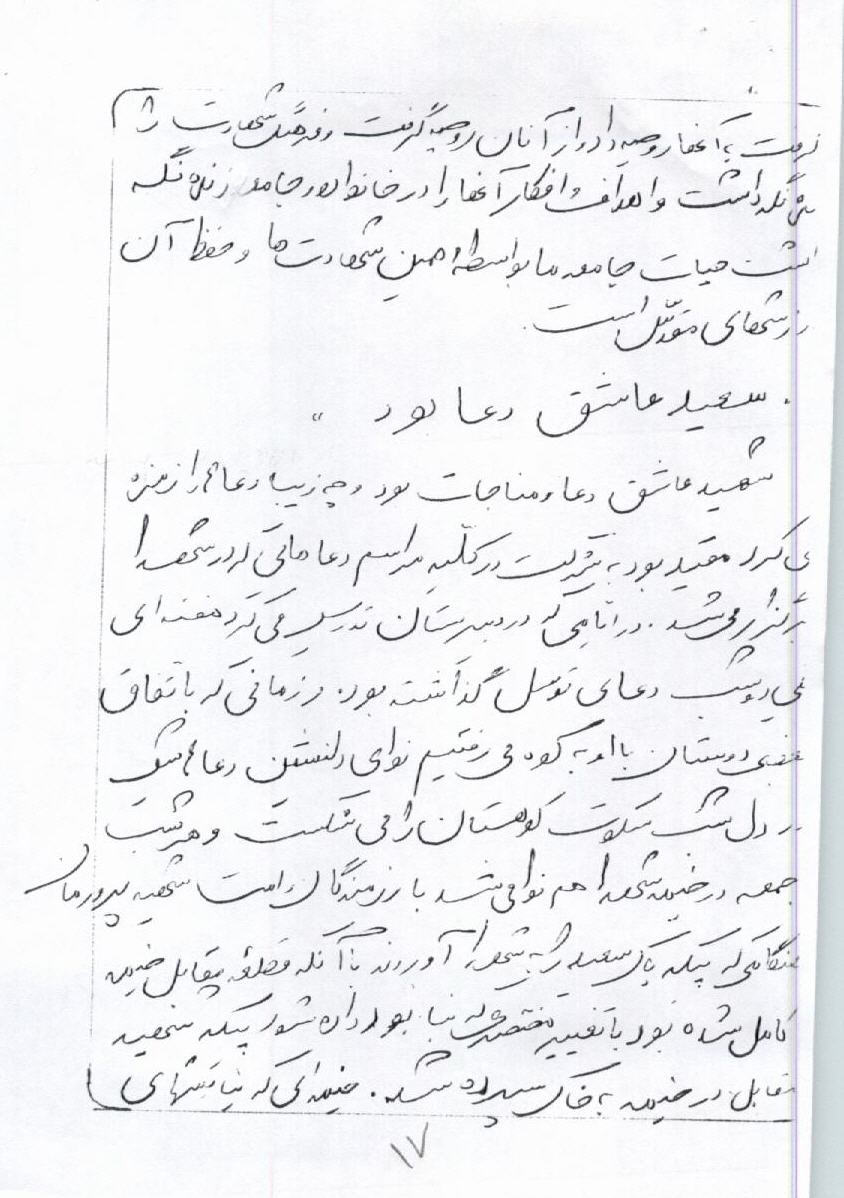 گرفت به آنها روحیه داد و از آنان روحیه گرفت و فرهنگ شهادت را
نگه داشت و اهداف و افکار آنها را در خانواده و جامعه زنده نگه
داشت حیات جامعه ما بواسطه همین شهادت ها و حفظ آن
ارزشهای مقدس است.
. سعید عاشق دعا بود "
شهید عاشق دعا و مناجات بود و چه زیبا دعاها را زمزمه
می کرد مقید بود به شرکت در کلیه مراسم دعاهائی که در شهدا
برگزار می شد. در ایامی که در دبیرستان تدریس می کرد هفته ای
یک شب دعای توسل گذاشته بود. در زمانی که باتفاق
بعضی دوستان با او به کوه می رفتیم نوای دلنشین دعاهایش
در دل شب سکوت کوهستان را می شکست و هر شب
جمعه در خیمه شهدا هم نوا می شد با رزمندگان و امت شهید پرورمان
هنگامی که پیکر پاک سعید را به شهدا آوردند با آنکه قطعه مقابل خیمه
کامل شده بود با تغییر مختصری که بنا بود داده شود پیکر شهید
مقابل در خیمه به خاک سپرده شد. خیمه ای که نیایشهای
۱۷